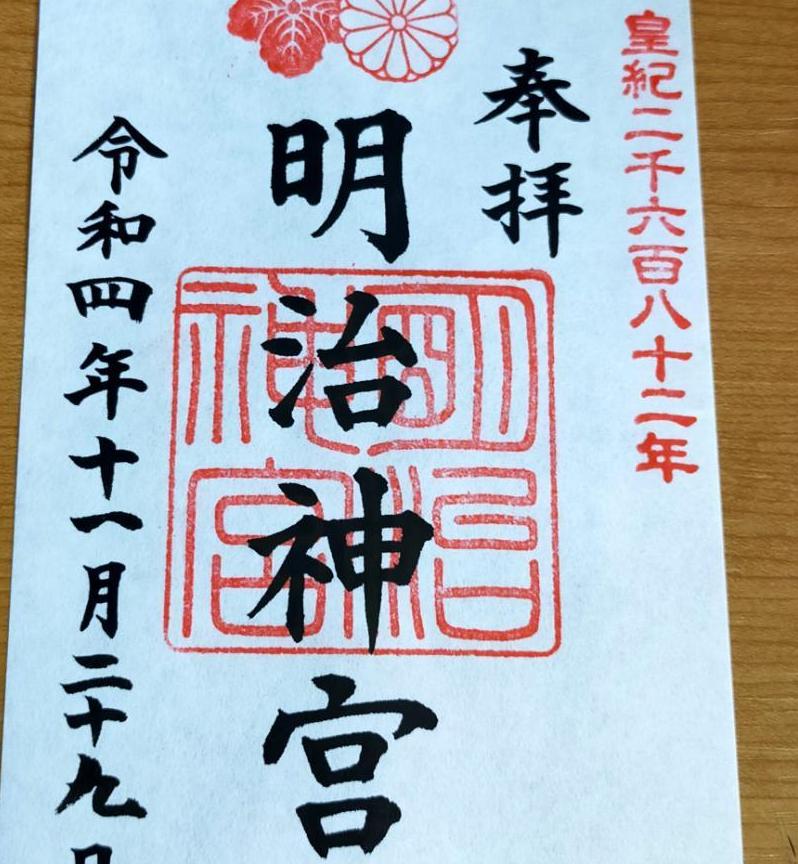 皇紀二千六百八十二年
奉拝
明治神宮
明治神宮
令和四年十一月二十九日